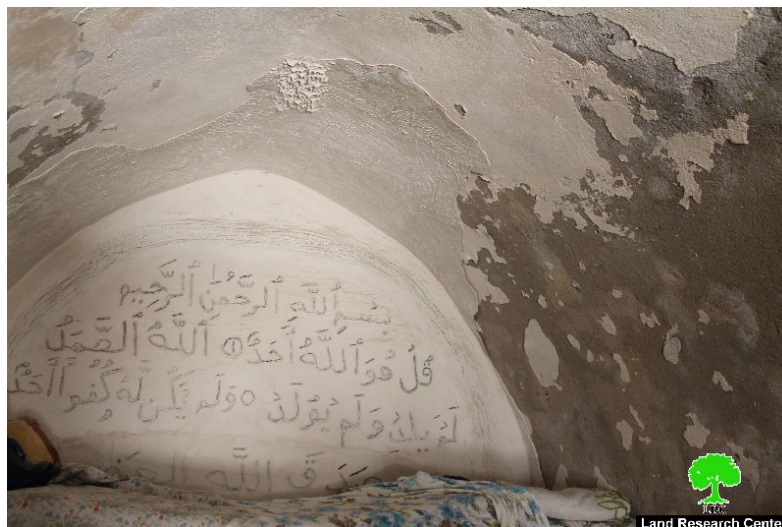 بِسْمِ ٱللَّهِ ٱلرَّحْمَٰنِ ٱلرَّحِيمِ
قُلْ هُوَ ٱللَّهُ أَحَدٌ ١ ٱللَّهُ ٱلصَّمَدُ
لَمْ يَلِدْ وَلَمْ يُولَدْ ٥ وَلَمْ يَكُن لَّهُ كُفُوًا أَحَدٌ
صَدَقَ اللَّه العظ
Land Research Cente